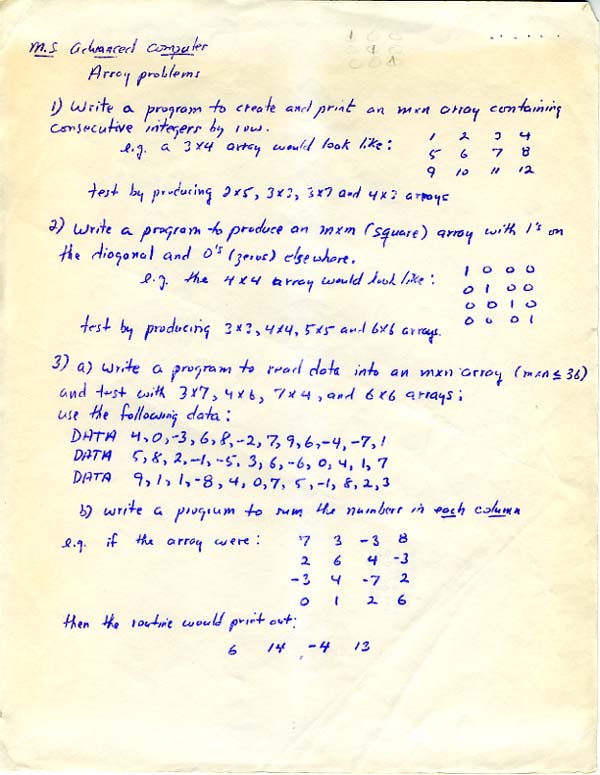 M.S Advanced Computer
Array problems
1 0 0
0 1 0
0 0 1
1) Write a program to create and print an mxn array containing
consecutive integers by row.
e.g. a 3x4 array would look like: 1 2 3 4
5 6 7 8
9 10 11 12
test by producing 2x5, 3x3, 3x7 and 4x3 arrays
2) Write a program to produce an mxm (square) array with 1's on
the diagonal and 0's (zeros) elsewhere.
e.g. the 4x4 array would look like: 1 0 0 0
0 1 0 0
0 0 1 0
0 0 0 1
test by producing 3x3, 4x4, 5x5 and 6x6 arrays.
3) a) Write a program to read data into an mxn array (mxn ≤ 36)
and test with 3x7, 4x6, 7x4, and 6x6 arrays;
use the following data:
DATA 4,0,-3,6,8,-2,7,9,6,-4,-7,1
DATA 5,8,2,-1,-5,3,6,-6,0,4,1,7
DATA 9,1,1,-8,4,0,7,5,-1,8,2,3
b) write a program to sum the numbers in each column
e.g. if the array were: 7 3 -3 8
2 6 4 -3
-3 4 -7 2
0 1 2 6
then the routine would print out:
6 14 -4 13